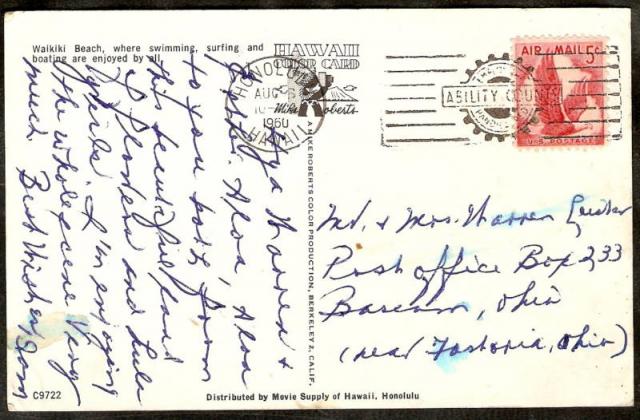 Waikiki Beach, where swimming, surfing and
boating are enjoyed by all.
HAWAII
COLOR CARD
Mike Roberts
HONOLULU
AUG
1960
HAWAII
ABILITY COUNTS
AIR MAIL 5¢
U.S. POSTAGE
Warren &
Aloa, Aloa
to you both from
this beautiful land
of flowers and Lulu
girls. I'm enjoying
the whole scene very
much. Best Wishes, Dom
A MIKE ROBERTS COLOR PRODUCTION, BERKELEY 2, CALIF.
Mr. & Mrs. Warren
Post office Box 233
Bascom, Ohio
(near Fostoria, Ohio)
C9722
Distributed by Movie Supply of Hawaii, Honolulu